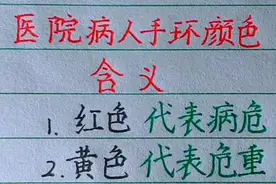 医院病人手环颜色
含义
1. 红色 代表病危
2. 黄色 代表危重